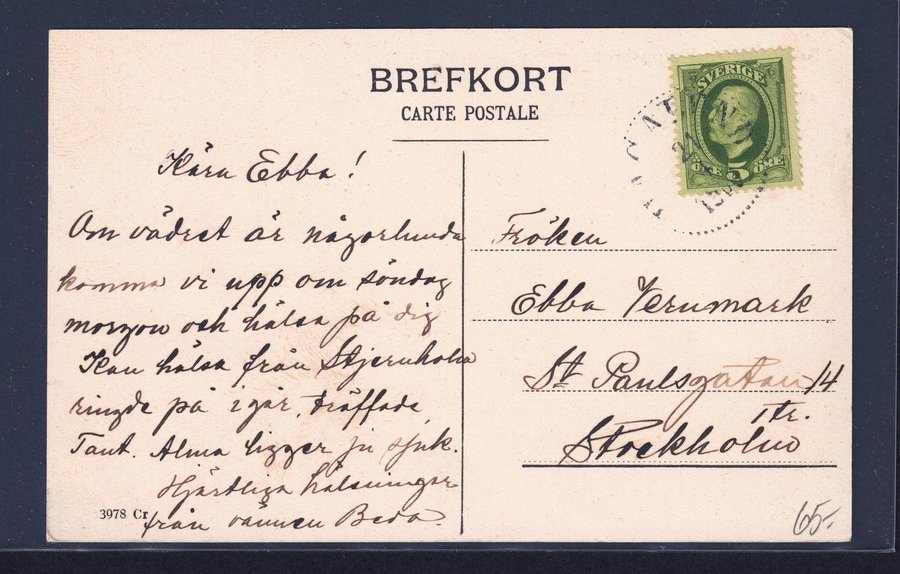 BREFKORT
CARTE POSTALE
SVERIGE
5
ÖRE ÖRE
Kära Ebba!
Om vädret är någorlunda
komma vi upp om söndag
morgon och hälsa på dig
Kan hälsa från Stjernholm
ringde på i går, träffade
Tant. Alma ligger ju sjuk.
Hjärtliga hälsningar
från vännen Beda.
3978 Cr
Fröken
Ebba Vernmark
St Paulsgatan 14
1 tr.
Stockholm
65.-